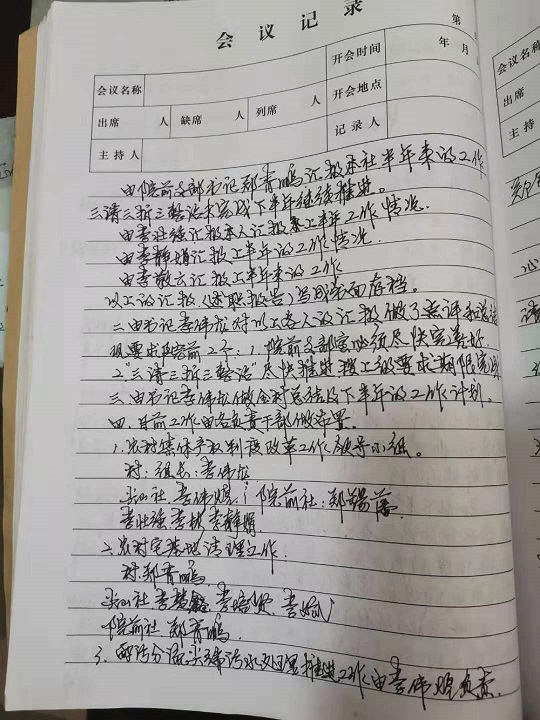 会议记录
第
会议名称
开会时间
年 月
出席 人 缺席 人 列席 人
开会地点
主持人
记录人
由院前支部书记郑青鹏汇报本社半年来的工作
三清三拆三整治未完成下半年继续推进。
由李壮强汇报本人汇报上半年工作情况
由李静娟汇报上半年的工作情况
由李敬云汇报上半年来的工作
以上的汇报(述职报告)写成书面存档。
二、由书记李伟拉对以上各人的汇报做了点评和总结
现要求院前2个:1.院前支部室必须尽快完善好
2."三清三拆三整治"尽快推进,按上级要求期限完成
三、由书记李伟拉做全村总结及下半年的工作计划。
四、目前工作由各负责干部做布置。
1.农村集体产权制度改革工作领导小组。
村:组长:李伟拉
社 李伟 院前社:郑锡
李壮强 李 李静娟
2.农村宅基地清理工作.
村:郑青鹏
社 李 李培 李
院前社 郑青鹏.
3.雨污分流,尖 污水处理推进工作,由李伟 负责.
会议名称
出席
主持人